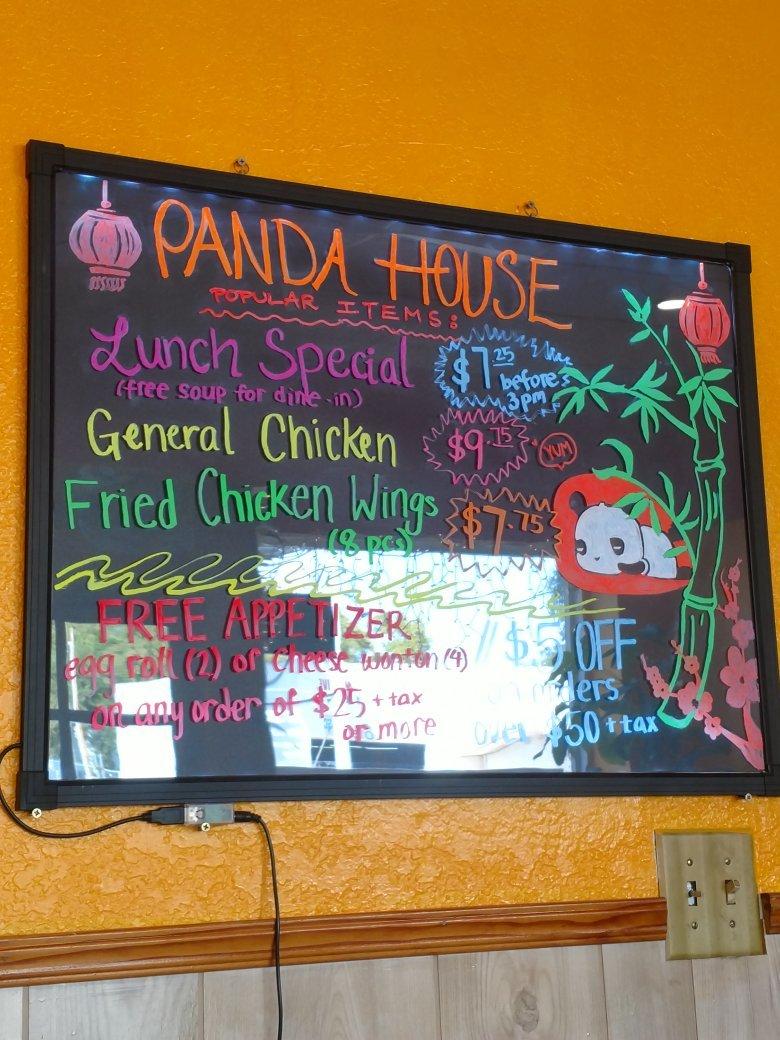 PANDA HOUSE
POPULAR ITEMS:
Lunch Special
(free soup for dine-in)
$7.25 before
3pm
General Chicken
$9.75
YUM
Fried Chicken Wings
(8 pcs)
$7.75
FREE APPETIZER
egg roll (2) or cheese wonton (4)
on any order of $25 + tax
or more
$5 OFF
on orders
over $50 + tax